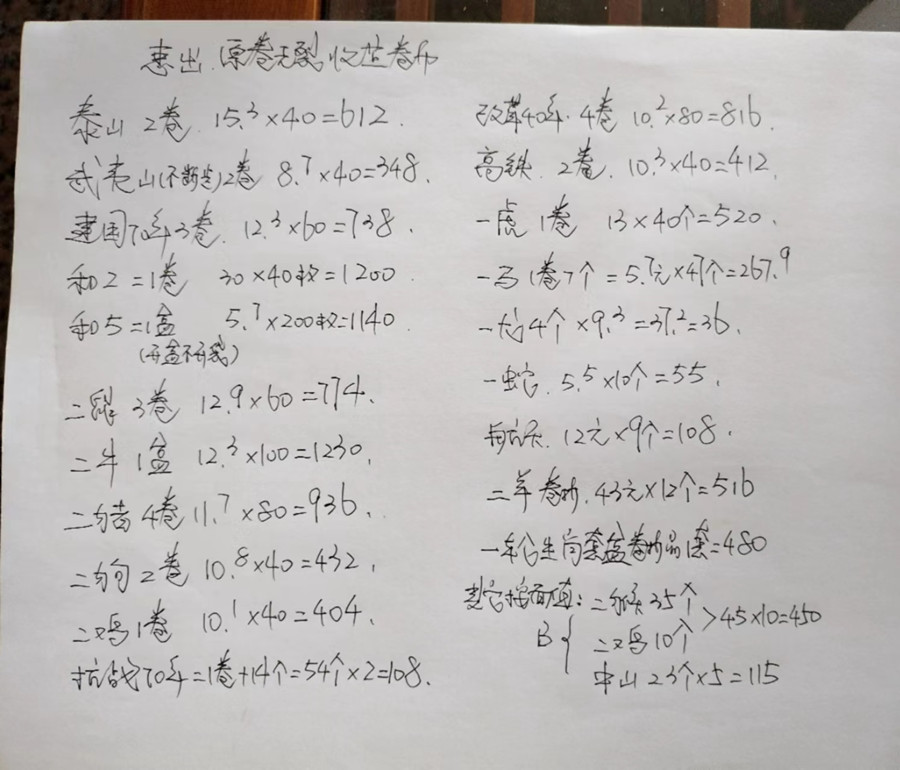 惠出.原卷无裂,收芷卷拆
泰山 2卷. 15.³×40=612.
武夷山(不断芷)2卷 8.⁷×40=348.
建国70年3卷. 12.³×60=738.
和2=1卷 30×40枚=1200
和5=1盒 5.⁷×200枚=1140
(开盒不开我)
二鼠 3卷 12.9×60=774.
二牛 1盒 12.³×100=1230.
二猪 4卷 11.⁷×80=936.
二狗 2卷 10.⁸×40=432.
二鸡 1卷 10.¹×40=404.
抗战70年=1卷+14个=54个×2=108.
改革40年. 4卷 10.²×80=816.
高铁. 2卷. 10.³×40=412.
一虎 1卷 13×40个=520.
一马 1卷7个=5.⁷元×47个=267.⁹
一龙4个×9.³=37.²=36.
一蛇. 5.5×10个=55.
航天. 12元×9个=108.
二羊卷拆. 43元×12个=516
一轮生肖套盒卷拆品1套=480
其它按面值: 二猴35个
>45×10=450
B{ 二鸡10个
中山23个×5=115